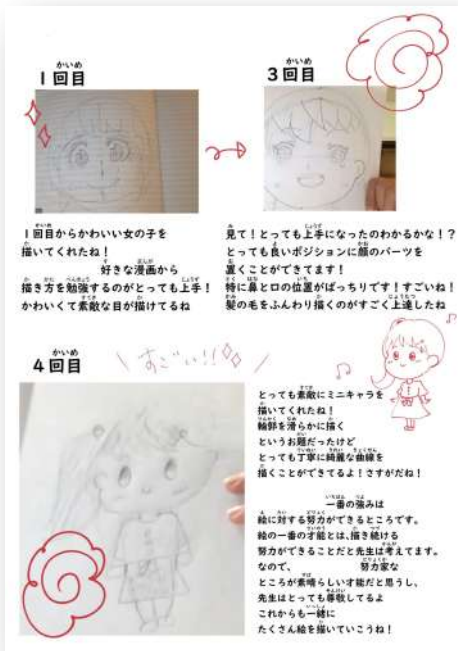 1回目
3回目
1回目からかわいい女の子を
描いてくれたね！
好きな漫画から
描き方を勉強するのがとっても上手！
かわいくて素敵な目が描けてるね
見て！とっても上手になったのわかるかな！？
とっても良いポジションに顔のパーツを
置くことができてます！
特に鼻と口の位置がばっちりです！すごいね！
髪の毛をふんわり描くのがすごく上達したね
4回目
すごい!!
とっても素敵にミニキャラを
描いてくれたね！
輪郭を滑らかに描く
というお題だったけど
とっても丁寧に綺麗な曲線を
描くことができてるよ！さすがだね！
一番の強みは
絵に対する努力ができるところです。
絵の一番の才能とは、描き続ける
努力ができることだと先生は考えてます。
なので、 努力家な
ところが素晴らしい才能だと思うし、
先生はとっても尊敬してるよ
これからも一緒に
たくさん絵を描いていこうね！